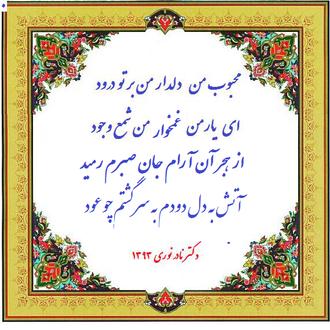 محبوب من دلدار من بر تو درود
ای یار من غمخوار من شمع وجود
از هجر آن آرام جان صبرم رمید
آتش به دل دودم به سر گشتم چو عود
دکتر نادر نوری ۱۳۹۳